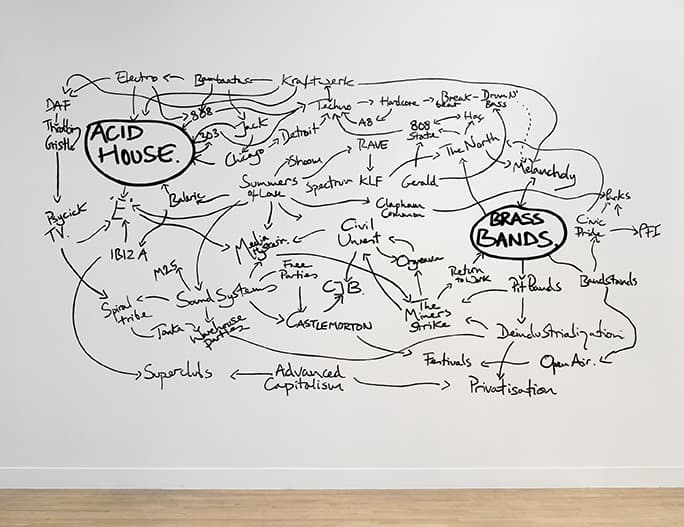 Electro
Bambaataa
Kraftwerk
DAF
Throbbing
Gristle
ACID
HOUSE.
808
303
Jack
Chicago
Detroit
Techno
Hardcore
Break
beat
Drum N'
Bass
A8
808
State
Hac
The North
Melancholy
Shoom
RAVE
Summers
of Love
Spectrum
KLF
Gerald
Clapham
Common
Parks
Balaric
'E'
Psychick
TV.
IBIZA
Media
Hysteria.
Civil
Unrest
Orgreave
BRASS
BANDS.
Civic
Pride
PFI
M25
Free
Parties
CJB.
Return
to Work
Pit Bands
Bandstands
Spiral
tribe
Sound Systems
Tonka
Warehouse
Parties
CASTLEMORTON
The
Miners
Strike
Deindustrialization
Festivals
Open Air.
Superclubs
Advanced
Capitalism
Privatisation